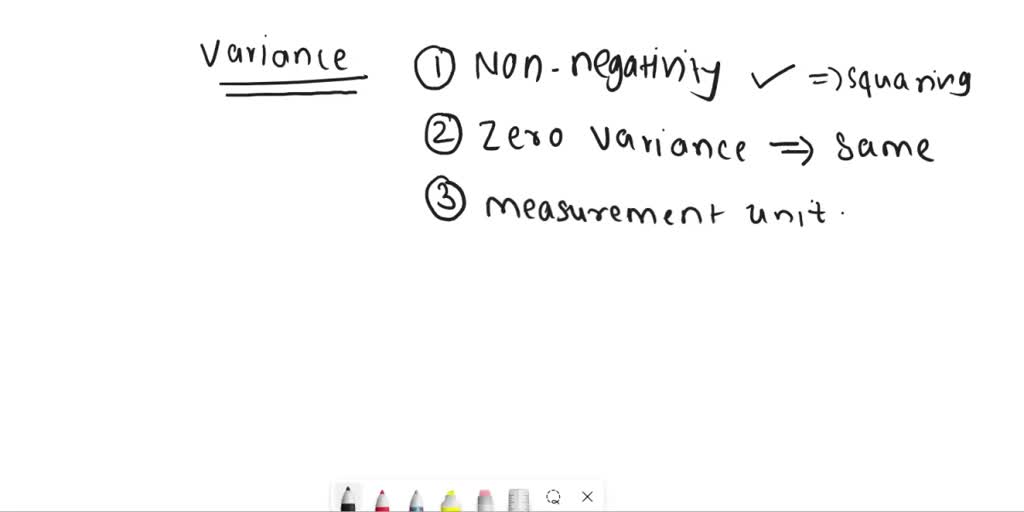 Variance
① Non-negativity ✓ ⇒ squaring
② Zero variance ⇒ same
③ measurement unit.